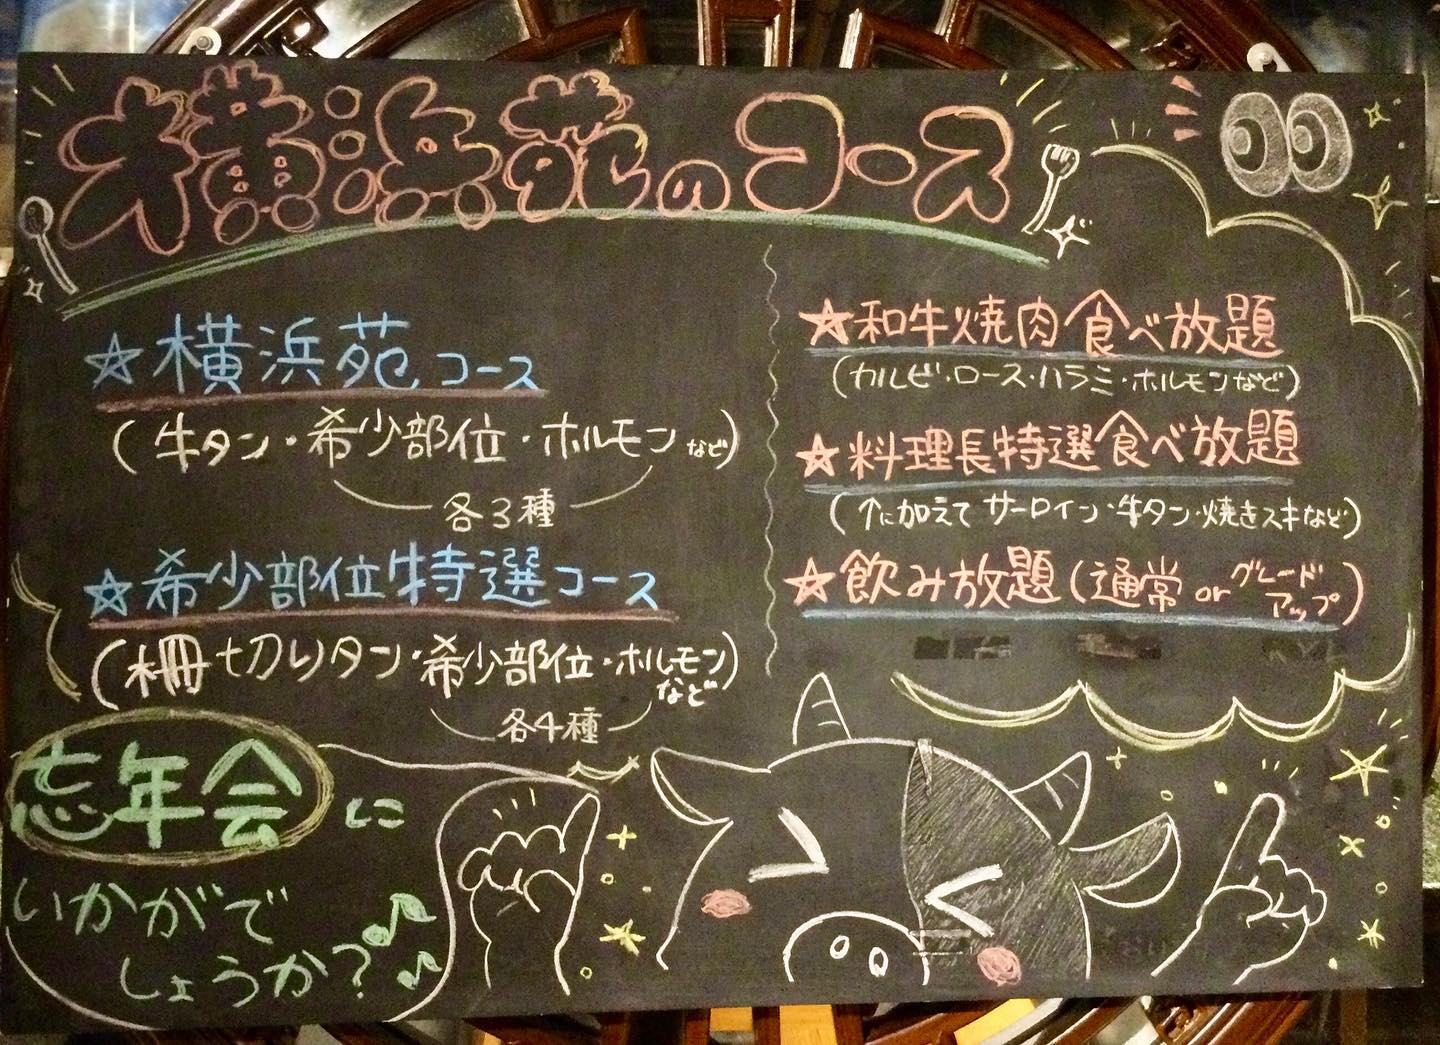 横浜苑のコース
☆横浜苑コース
(牛タン・希少部位・ホルモンなど)
各3種
☆希少部位特選コース
(柵切りタン・希少部位・ホルモンなど)
各4種
☆和牛焼肉食べ放題
(カルビ・ロース・ハラミ・ホルモンなど)
☆料理長特選食べ放題
(↑に加えてサーロイン・牛タン・焼きスキなど)
☆飲み放題(通常 or グレードアップ)
忘年会に
いかがで
しょうか?